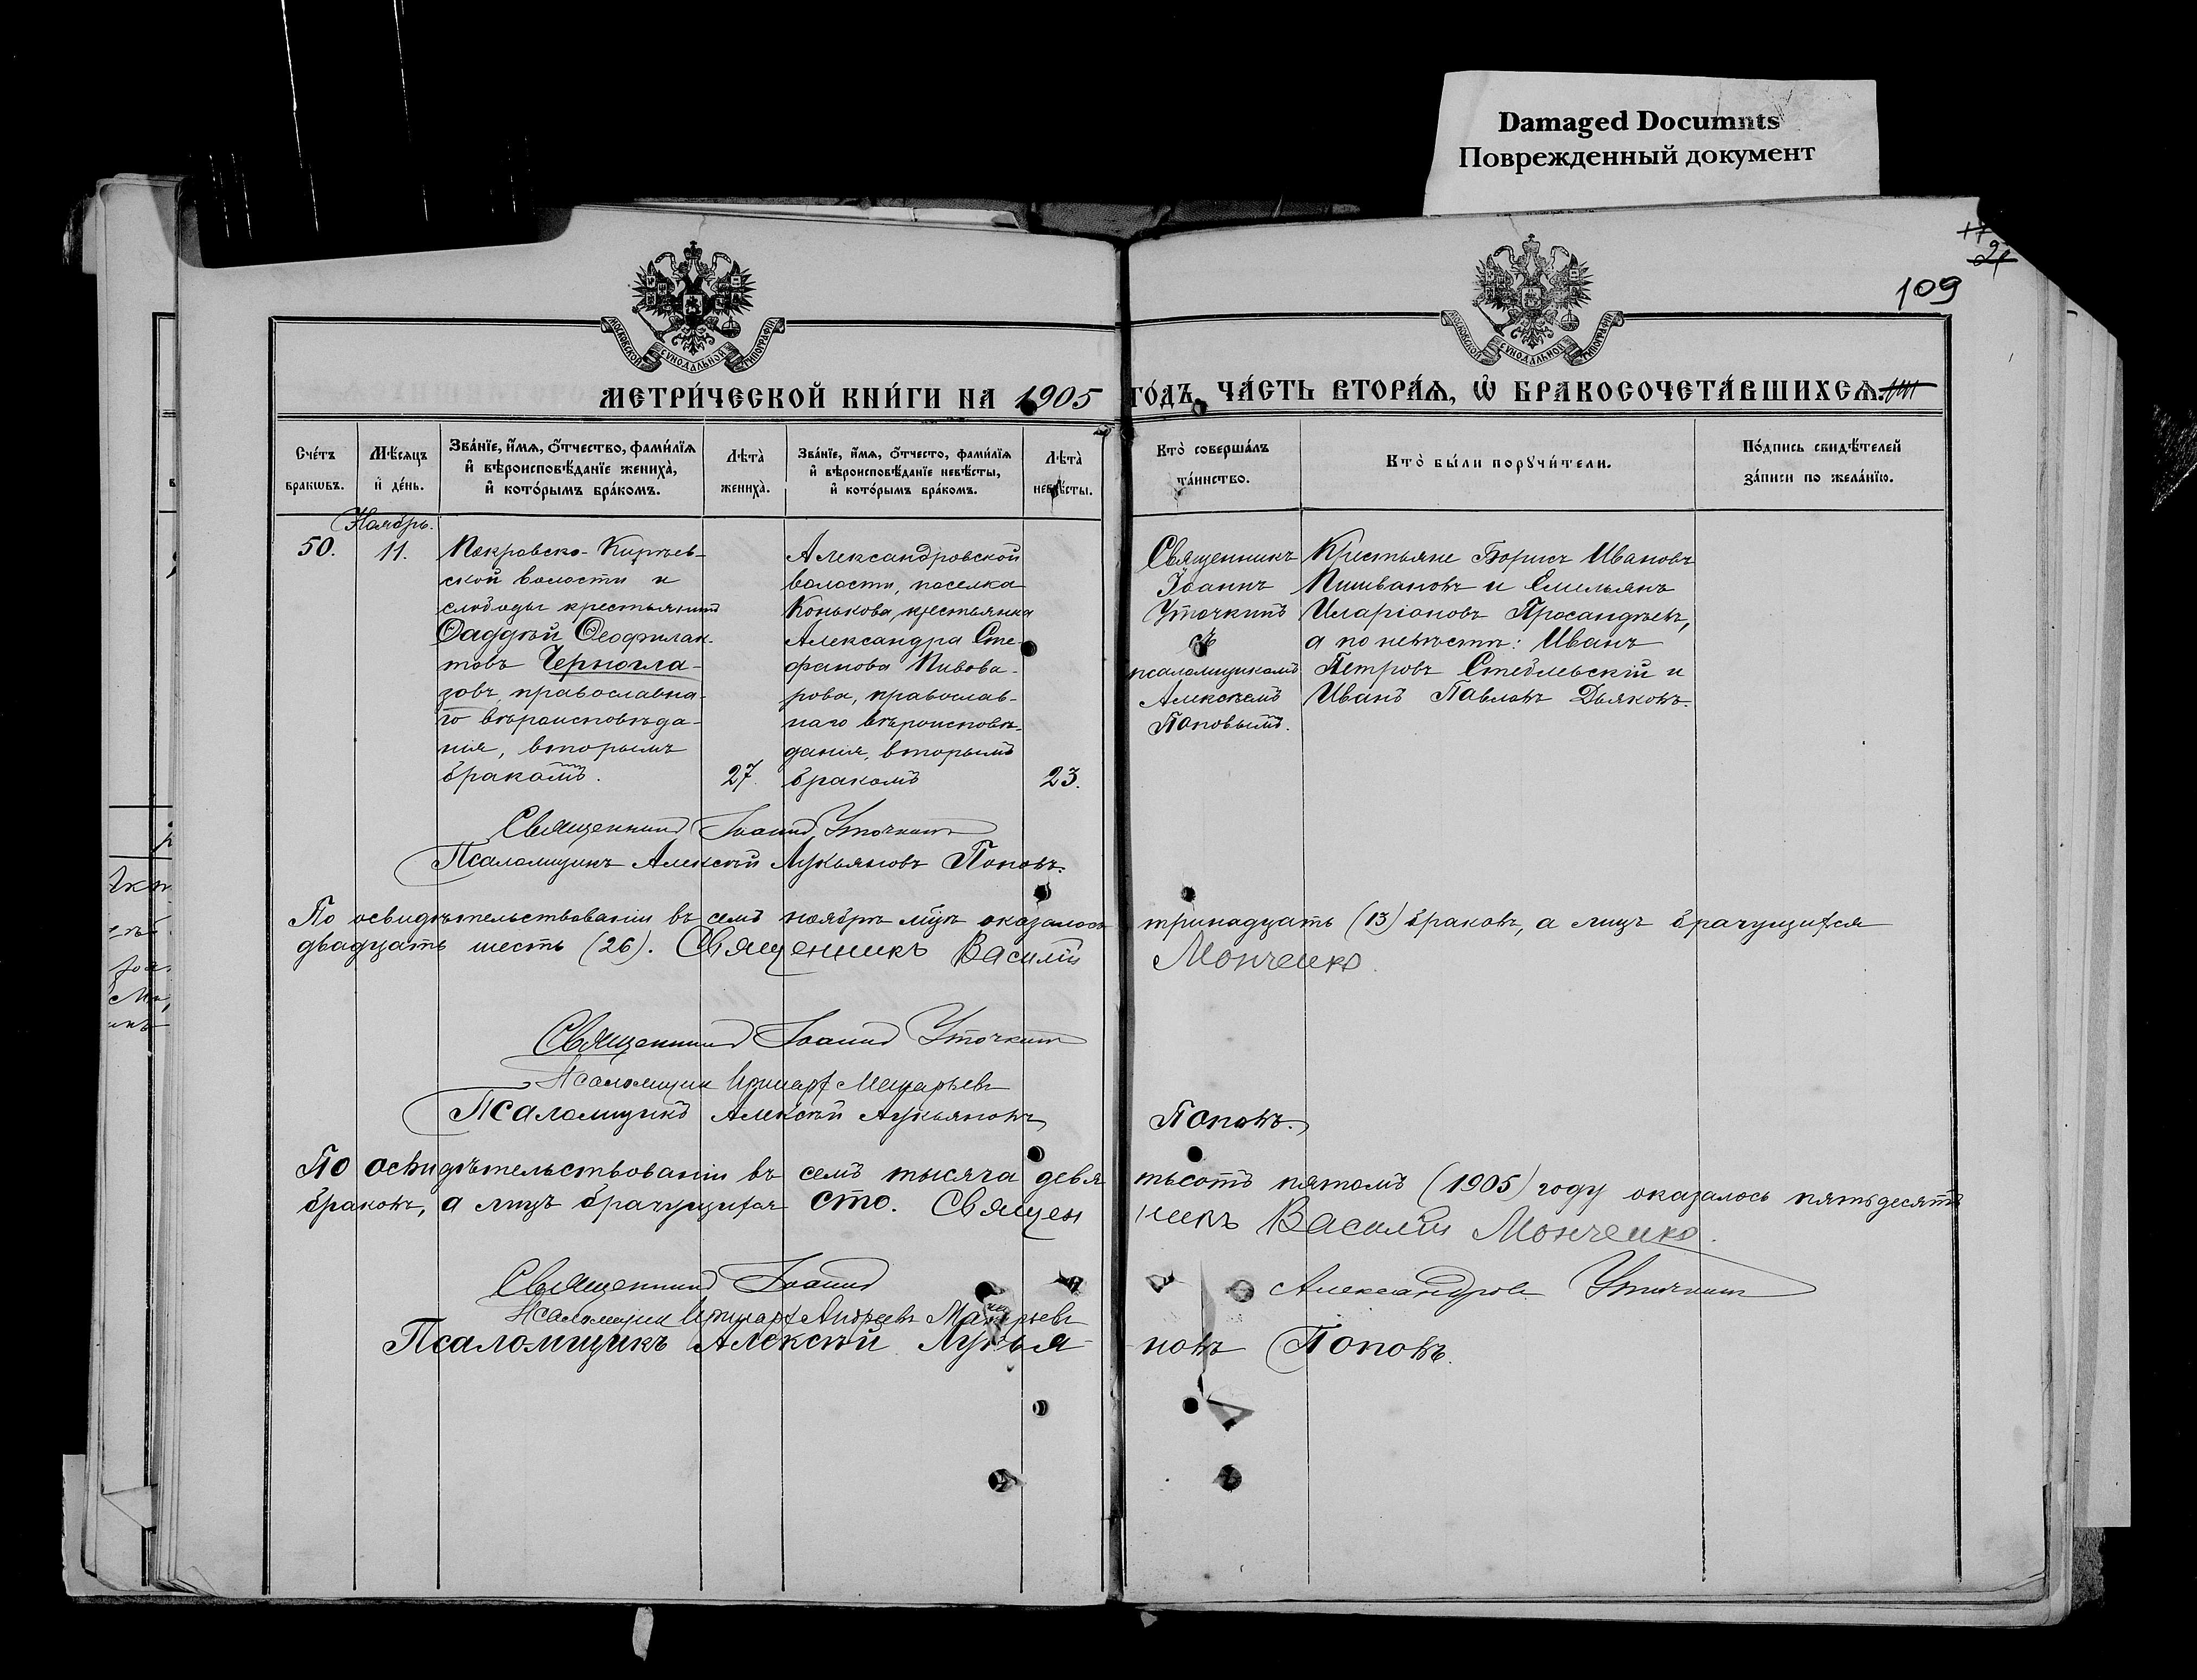 Damaged Documnts
Поврежденный документ
109
МОСКОВСКОЙ СУНОДАЛЬНОЙ ТИПОГРАФІИ
МОСКОВСКОЙ СУНОДАЛЬНОЙ ТИПОГРАФІИ
МЕТРИ́ЧЕСКОЙ КНИ́ГИ НА 1905 ГО́ДЪ, ЧА́СТЬ ВТОРА́Ѧ, Ѡ҆ БРАКОСОЧЕТА́ВШИХСѦ.
Сче́тъ
бракѡвъ.
Мѣ́сяцъ
и҆ де́нь.
Зва́нїе, и҆́мѧ, о҆́тчество, фами́лїѧ
и҆ вѣроисповѣ́данїе жениха̀,
и҆ кото́рымъ бра́комъ.
Лѣта̀
жениха̀.
Зва́нїе, и҆́мѧ, о҆́тчесто, фами́лїѧ
и҆ вѣроисповѣ́данїе невѣ́сты,
и҆ кото́рымъ бра́комъ.
Лѣта̀
невѣ́сты.
Кто̀ соверша́лъ
та́инство.
Кто̀ бы́ли порꙋчи́тели.
По́дпись свидѣ́телей
за́писи по жела́нїю.
Ноябрь.
50.
11.
Покровско-Кирѣев-
ской волости и
слободы крестьянинъ
Ѳаддѣй Ѳеофилак-
товъ Черногла-
зовъ, православна-
го вѣроисповѣда-
нія, вторымъ
бракомъ.
27.
Александровской
волости, поселка
Конькова, крестьянка
Александра Сте-
фанова Пивова-
рова, православ-
наго вѣроисповѣ-
данія, вторымъ
бракомъ
23.
Священникъ
Іоаннъ
Уточкинъ
съ
псаломщикомъ
Алексѣемъ
Поповымъ.
Крестьяне Борисъ Ивановъ
Пишвановъ и Емельянъ
Иларіоновъ Просандѣевъ,
а по невѣстѣ: Иванъ
Петровъ Стеблевскій и
Иванъ Павловъ Дьяковъ.
Священникъ Іоаннъ Уточкинъ
Псаломщикъ Алексѣй Лукьяновъ Поповъ.
По освидѣтельствованіи въ семъ ноябрѣ мцѣ оказалось тринадцать (13) браковъ, а лицъ брачущихся
двадцать шесть (26). Священникъ Василій Монченко.
Священникъ Іоаннъ Уточкинъ
Псаломщик Иринарх Макарьевъ
Псаломщикъ Алексѣй Лукьяновъ Поповъ.
По освидѣтельствованіи въ семъ тысяча девятьсотъ пятомъ (1905) году оказалось пятьдесятъ
браковъ, а лицъ брачущихся сто. Священникъ Василій Монченко.
Священникъ Іоаннъ Александров Уточкинъ
Псаломщик Иринарх Андреевъ Макарьевъ
Псаломщикъ Алексѣй Лукья-новъ Поповъ.